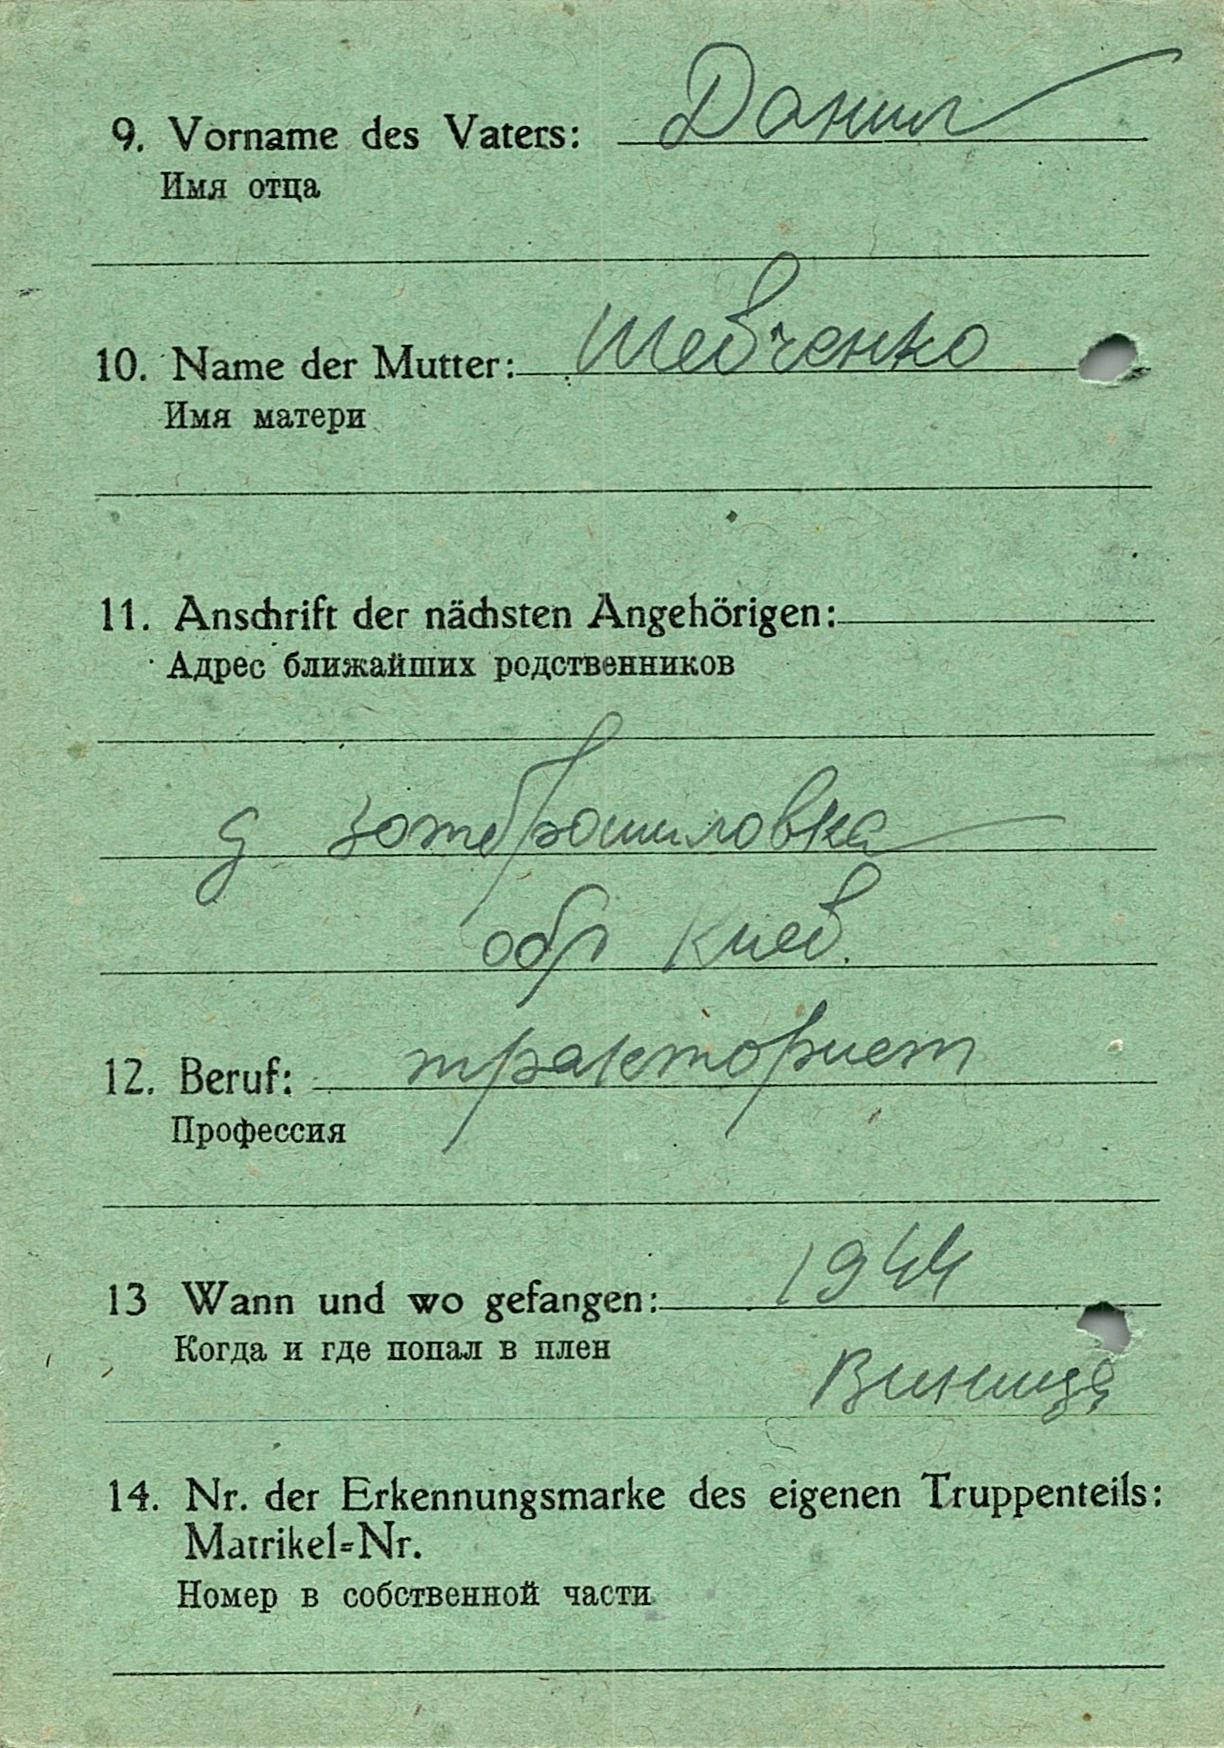 9. Vorname des Vaters: Данил
Имя отца
10. Name der Mutter: Шевченко
Имя матери
11. Anschrift der nächsten Angehörigen:
Адрес ближайших родственников
д
обл Киев.
12. Beruf: тракторист
Профессия
13 Wann und wo gefangen: 1944
Когда и где попал в плен
Виница
14. Nr. der Erkennungsmarke des eigenen Truppenteils:
Matrikel=Nr.
Номер в собственной части